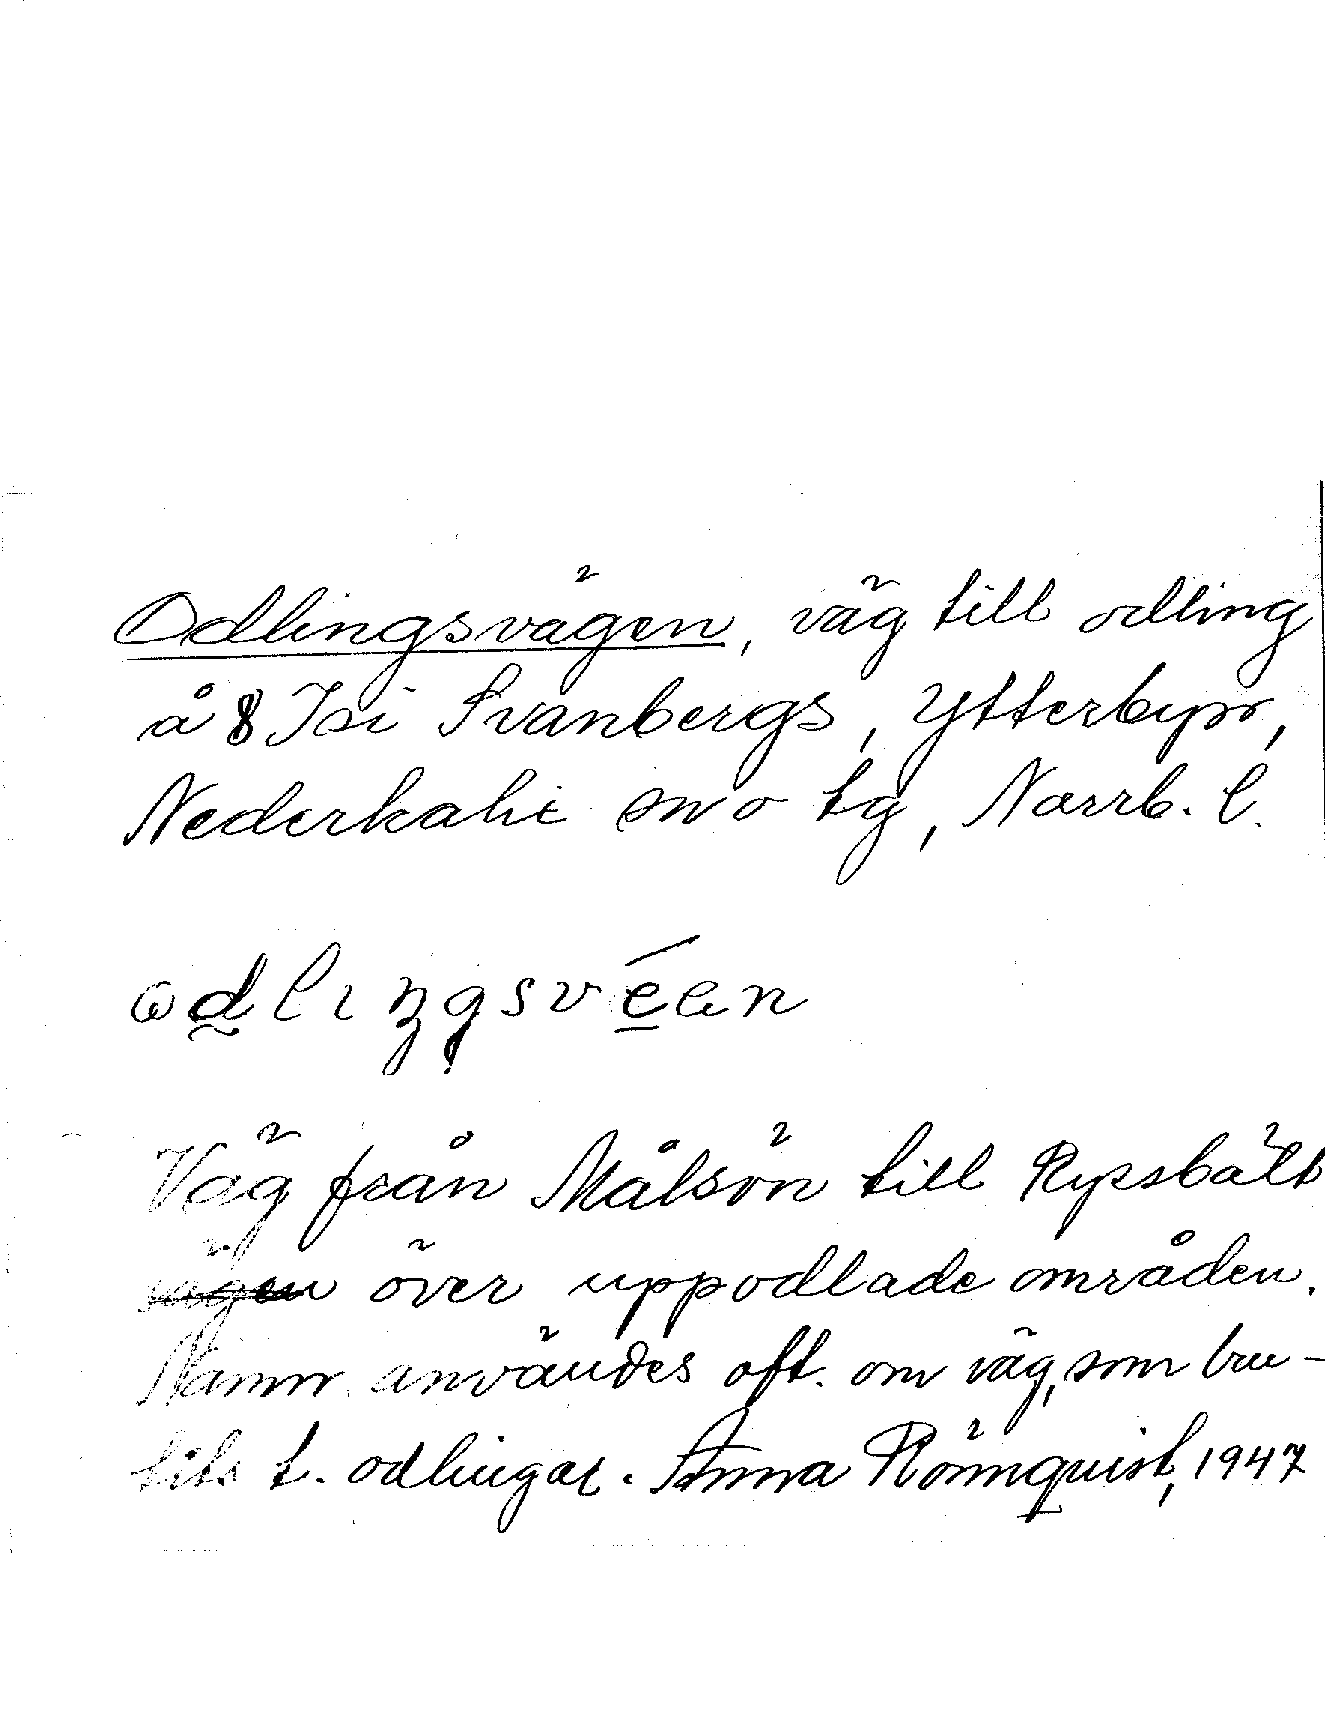 Odlingsvägen, väg till odling
å 8 Isi Svanbergs, Ytterbyn,
Nederkalix sn o tg, Norrb. l.
ɷdlıngsvéen
Väg från Målsön till Ryssbält
över uppodlade områden.
Namn användes oft. om väg, som bru-
tits t. odlingar. Anna Rönnquist, 1947